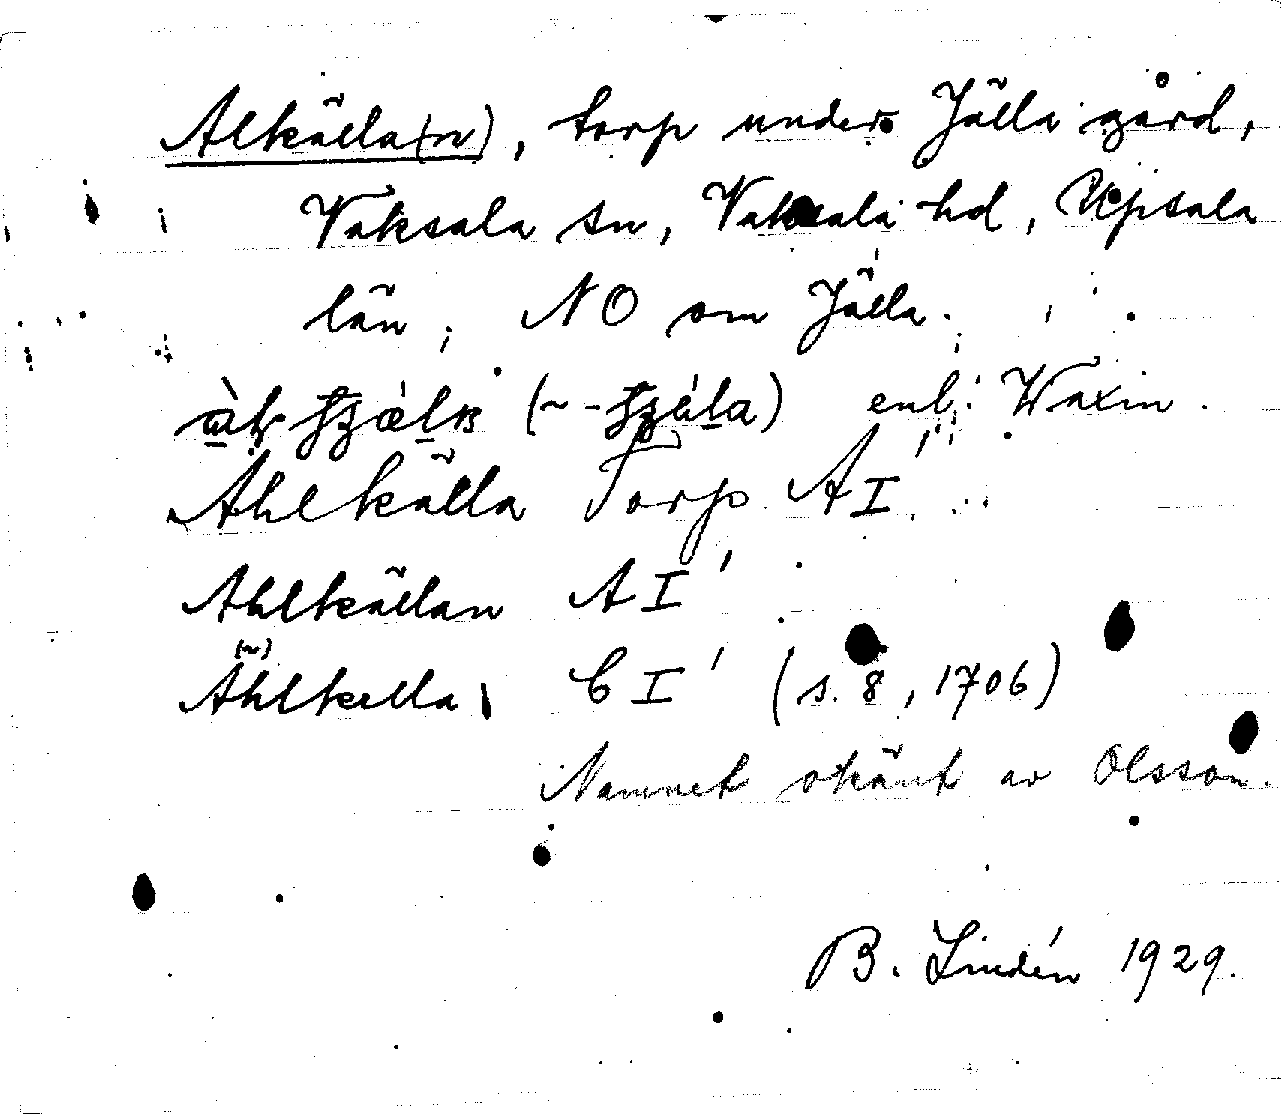 Alkälla(n), torp under Jälla gård,
Vaksala sn, Vaksala hd, Upsala
län, NO om Jälla.
enl. Waxin.
Ahlkälla Torp AI'
Ahlkällan AI'
Åhlkella CI' (s. 8, 1706)
Namnet okänt av Olsson.
B. Lindén 1929.